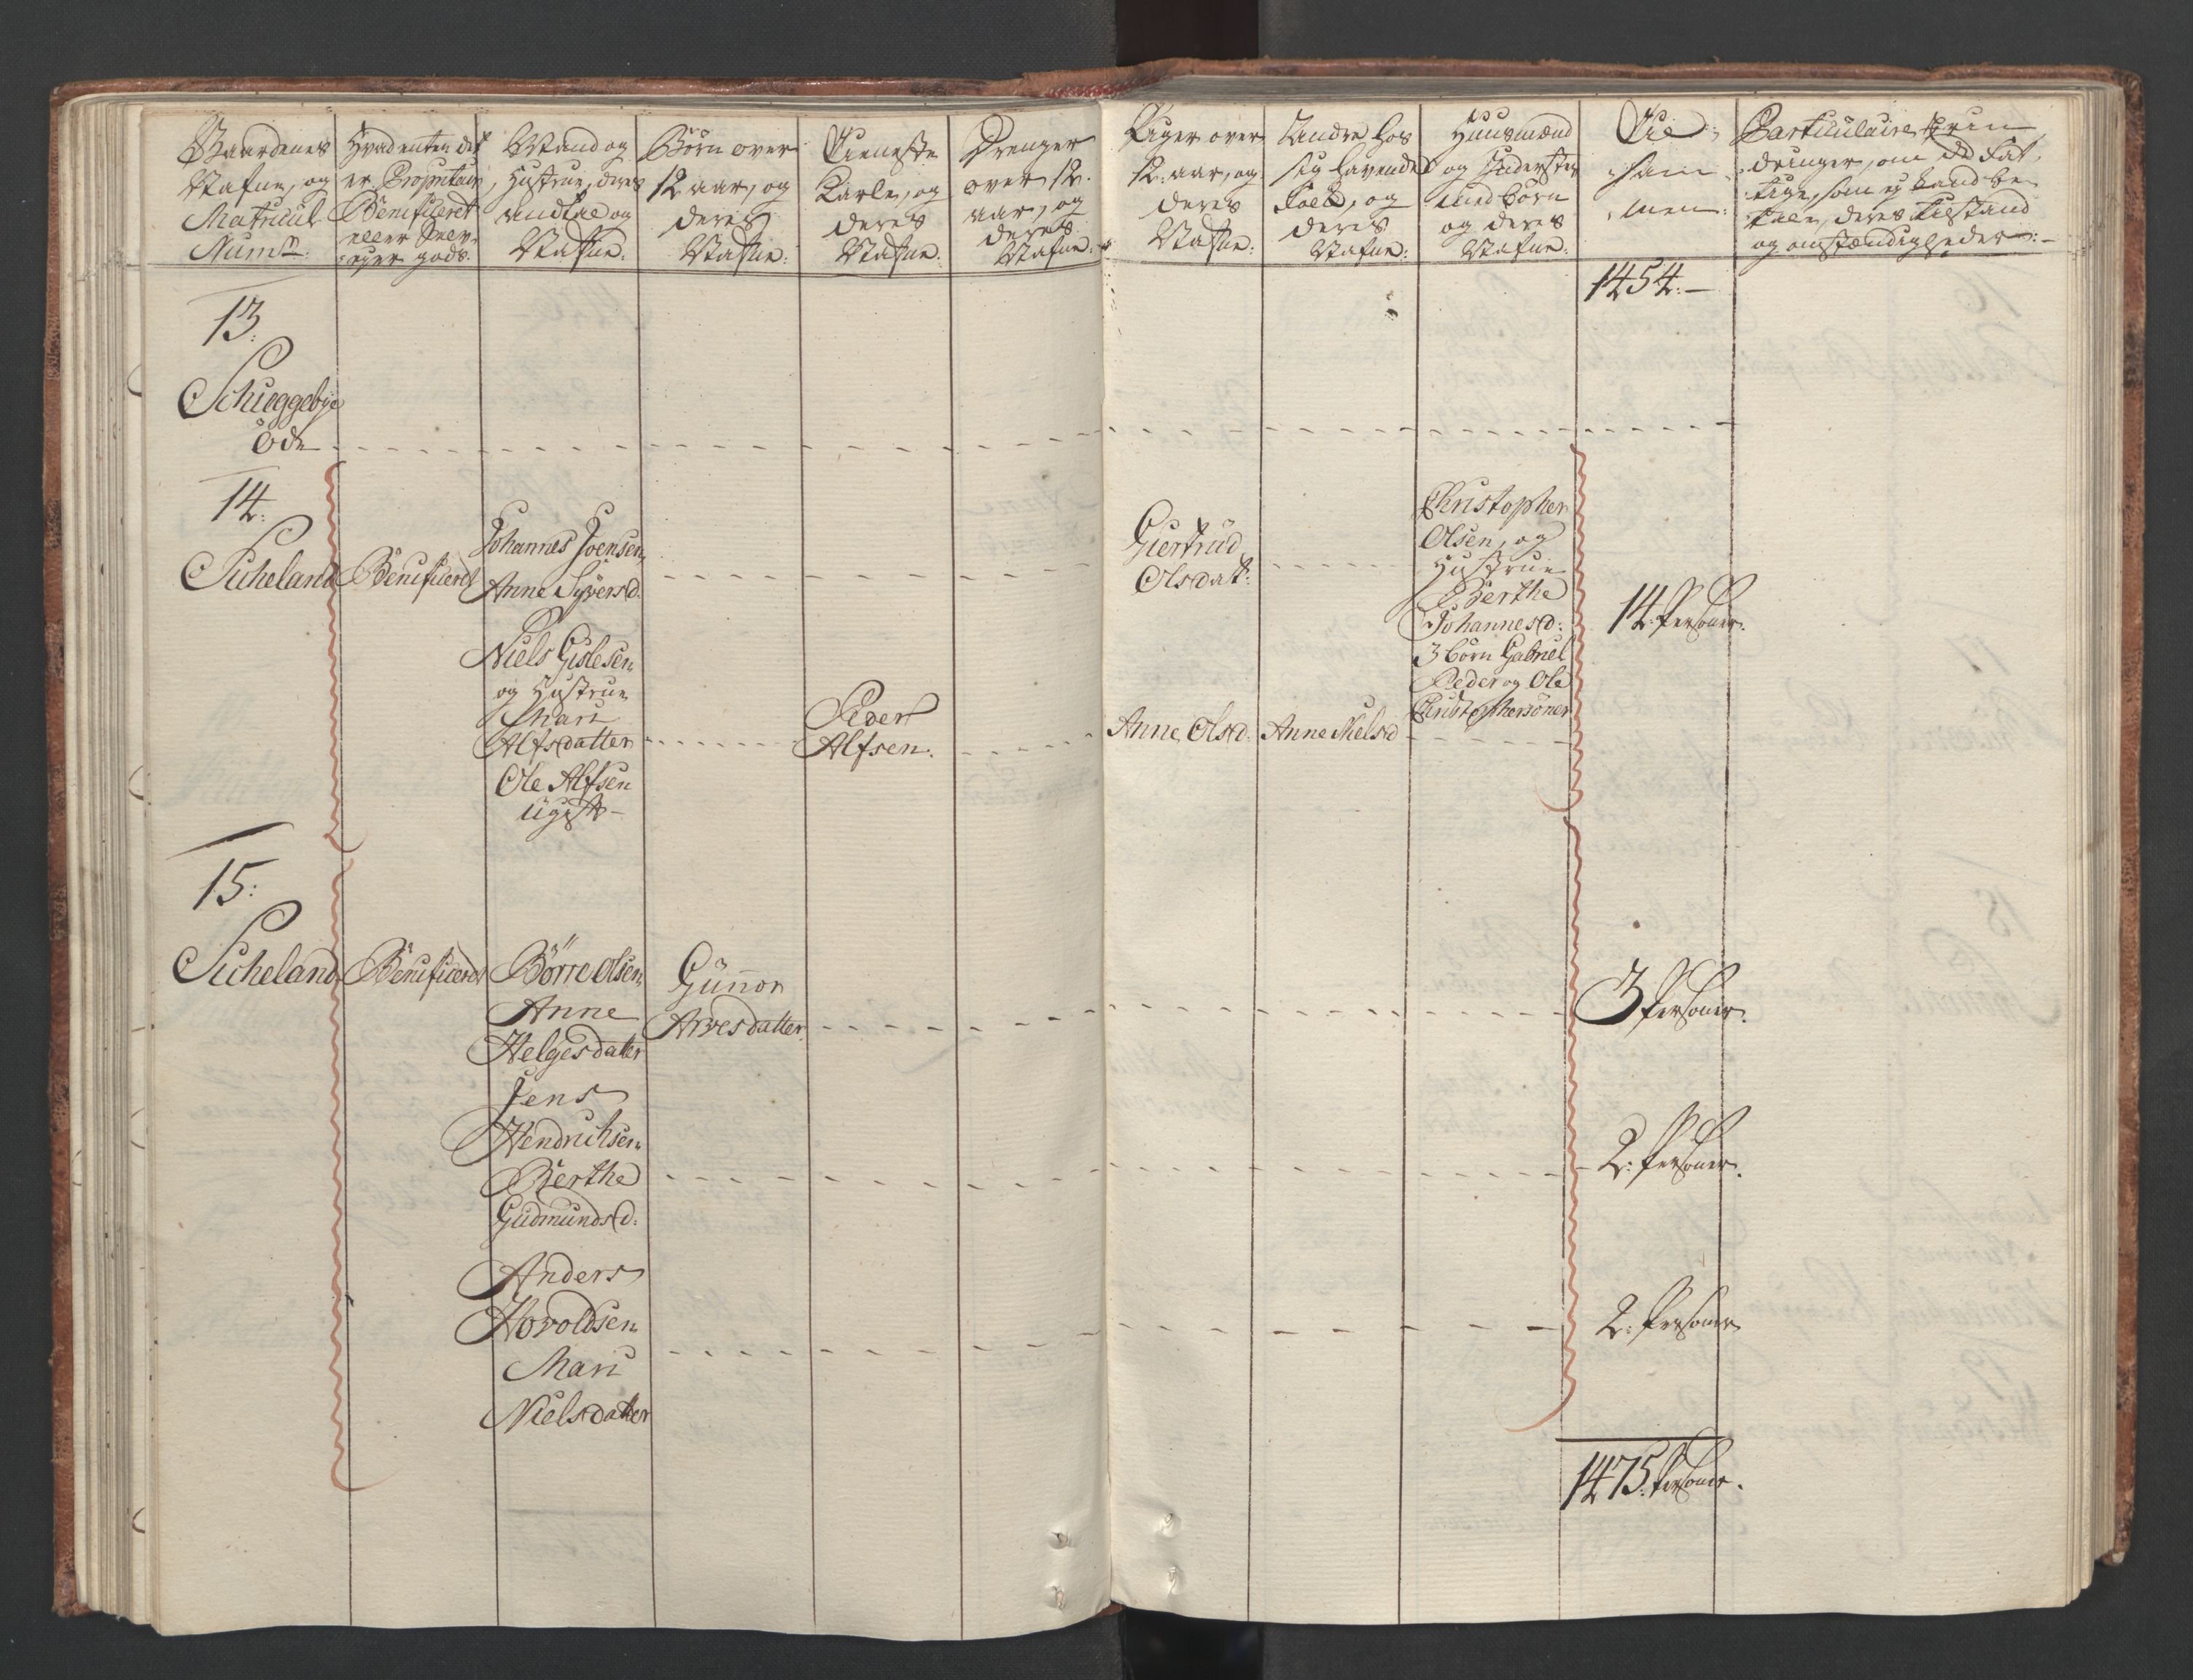 Gaardenes
Nafne, og
Matricul
Num:
Hvad enten det
er Proprietair,
Benificeret
eller Selv-
eyer gods.
Mand og
Hustrue, deres
andtal og
Nafne:
Börn over
12 aar, og
deres
Nafne:
Tieneste
Karle, og
deres
Nafne:
Drenger
over 12.
aar, og
deres
Nafne:
Piger over
12. aar, og
deres
Nafne:
Andre hos
sig havende
Folk, og
deres
Nafne:
Huusmænd
og Inderster
med börn
og deres
Nafne:
Til-
sam-
men:
Particulaire Erin-
dringer, om de fat-
tige, som ej kand be-
tale, deres tilstand
og omstændigheder:
1454.
13.
Schieggebye
öde
14.
Sicheland
Benificeret
Johannes Joensen,
Anne Syversd.
Giertrud
Olsdat:
Christopher
Olsen, og
Hustrue
Berthe
Johannesd:
3 börn Gabriel
Peder og Ole
Christophersöner
14. Personer.
Niels Gislesen
og Hustrue
Mari
Alfsdatter
Peder
Alfsen.
Anne Olsd.
Anne Nielsd
Ole Alfsen
ugift
15:
Sicheland
Benificeret
Börre Olsen,
Anne
Helgesdatter
Gunnor
Arvesdatter.
3 Personer.
Jens
Hendrichsen
Berthe
Gudmundsd:
2: Personer.
Anders
Hovoldsen
Mari
Nielsdatter
2: Personer
1475. Personer.